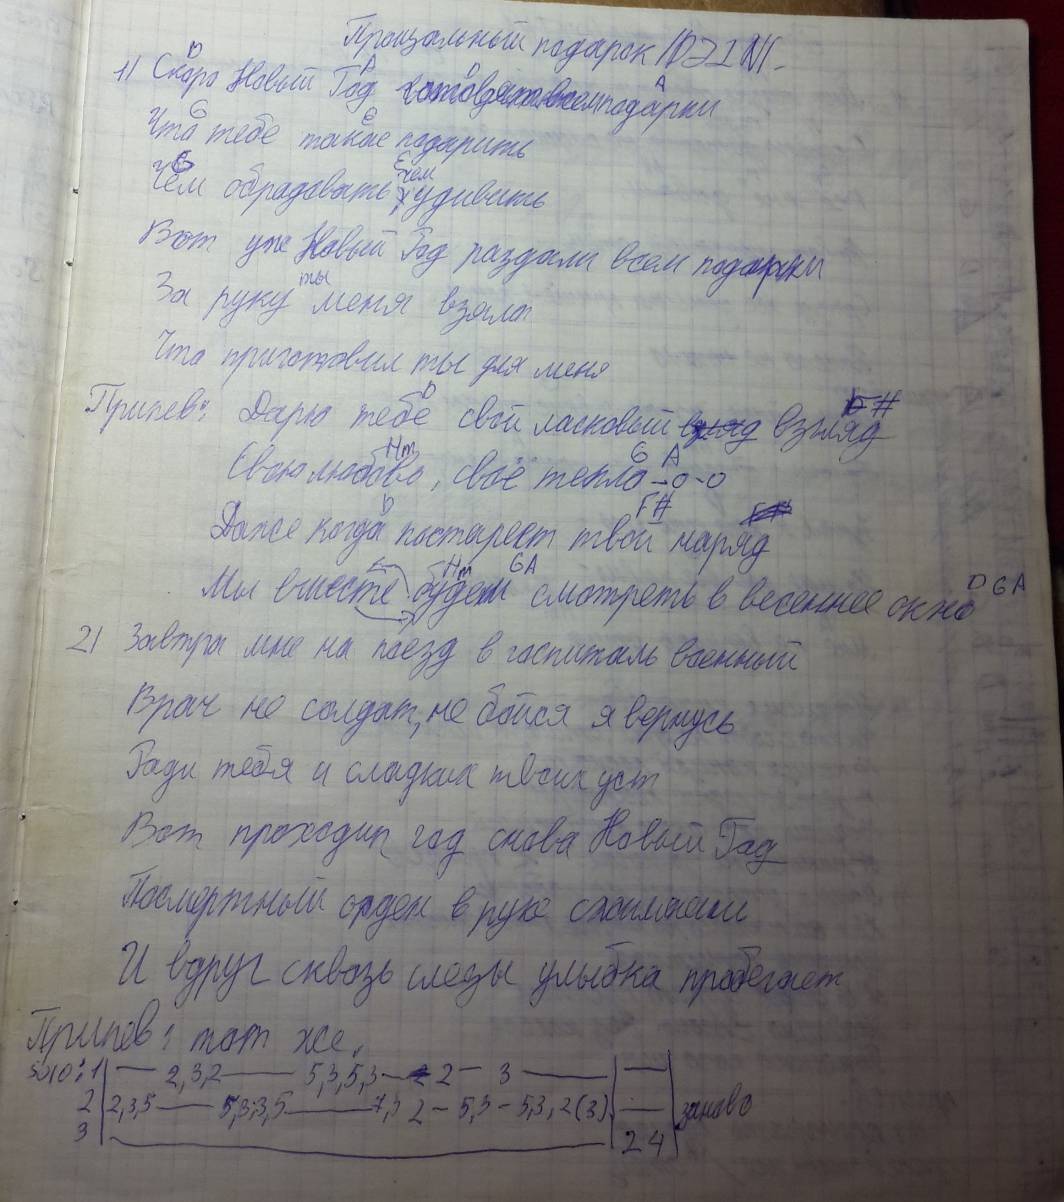 Прощальный подарок /DЭIN/.
D A D A
1) Скоро Новый Год готовят всем подарки
G G
Что тебе такое подарить
G G
Чем обрадовать чем удивить
Вот уж Новый Год раздали всем подарки
За руку ты меня взяла
Что приготовил ты для меня
D F#
Припев: Дарю тебе свой ласковый взгляд
Hm G A
Свою любовь, своё тепло-о-о
D F#
Даже когда постареет твой наряд
Hm G A D G A
Мы вместе будем смотреть в весеннее окно
2) Завтра мне на поезд в госпиталь военный
Врач не солдат, не бойся я вернусь
Ради тебя и сладких твоих уст
Вот проходит год снова Новый Год
Посмертный орден в руке
И вдруг сквозь слезы улыбка пробегает
Припев: тот же.
Solo: 1 | — 2,3,2 —— 5,3,5,3 — 2 — 3 —— | — |
2 | 2,3,5 —— 5,3,3,5 —— 7,5 2 – 5,3 – 5,3,2(3) | — | заново
3 | —— | 2 4 |